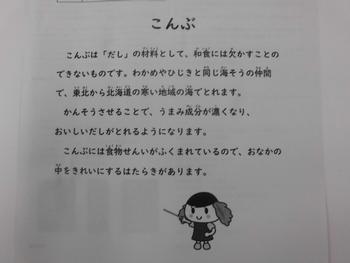 こんぶ
こんぶは「だし」の材料として、和食には欠かすことの
できないものです。わかめやひじきと同じ海そうの仲間
で、東北から北海道の寒い地域の海でとれます。
かんそうさせることで、うまみ成分が濃くなり、
おいしいだしがとれるようになります。
こんぶには食物せんいがふくまれているので、おなかの
中をきれいにするはたらきがあります。